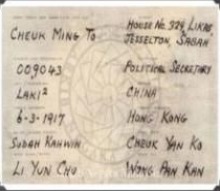 CHEUK MING TO
HOUSE No. 329, LIKAS
JESSELTON, SABAH
009043
POLITICAL SECRETARY
LAKI²
CHINA
6-3-1917
HONG KONG
SUDAH KAHWIN
CHEUK YAN KO
LI YUN CHU
WONG PAN KAN